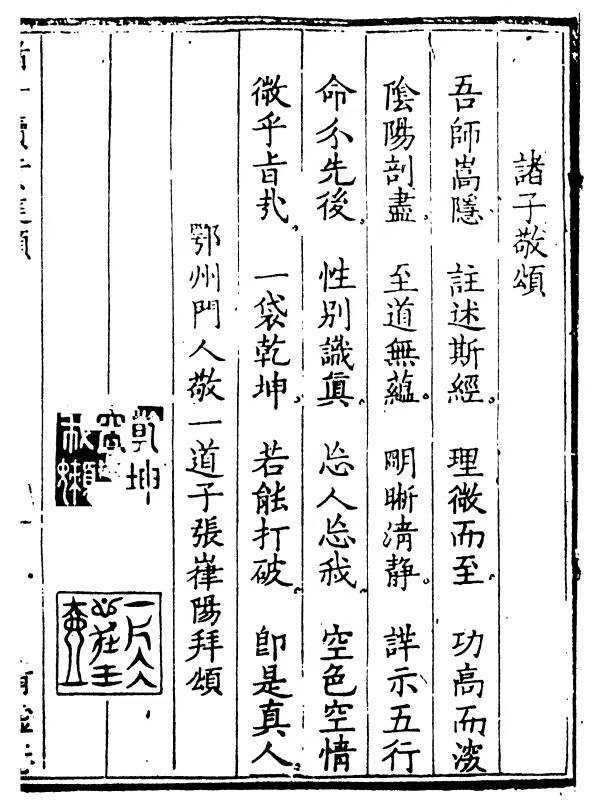 諸子敬頌
吾師嵩隱 註述斯經。 理微而至。 功高而深
陰陽剖盡。 至道無蘊。 明晰清静。 詳示五行
命分先後。 性别識真。 忘人忘我。 空色空情
微乎旨哉。 一袋乾坤。 若能打破。 即是真人。
鄂州門人敬一道子張嵂陽拜頌
乾坤